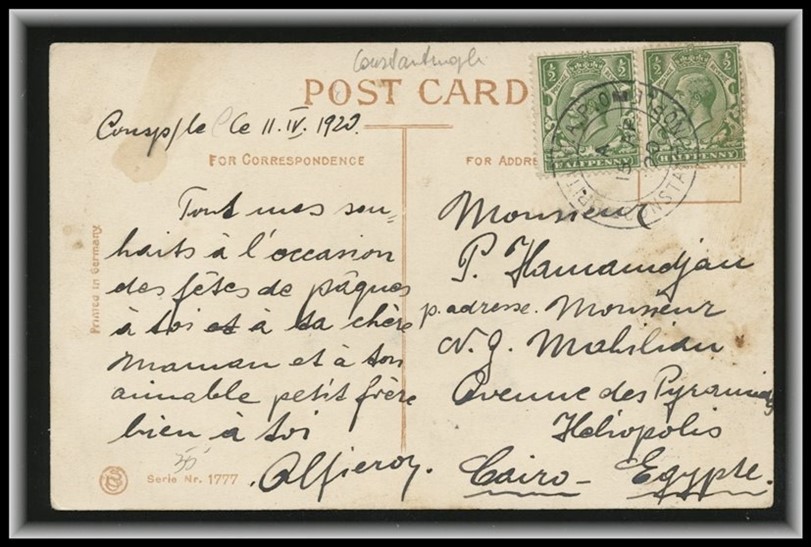 Constantinople
POST CARD
½ ½ ½ ½
HALFPENNY HALFPENNY
Consple le 11.IV.1920.
FOR CORRESPONDENCE
FOR ADDRE
Tout mes sou=
haits à l'occasion
des fêtes de pâques
à toi et à ta chère
Maman et à ton
aimable petit frère
bien à toi
Monsieur
P. Hamamdjian
p. adresse. Monsieur
Avenue des Pyramides
Héliopolis
Cairo - Egypte.
Printed in Germany
Serie Nr. 1777